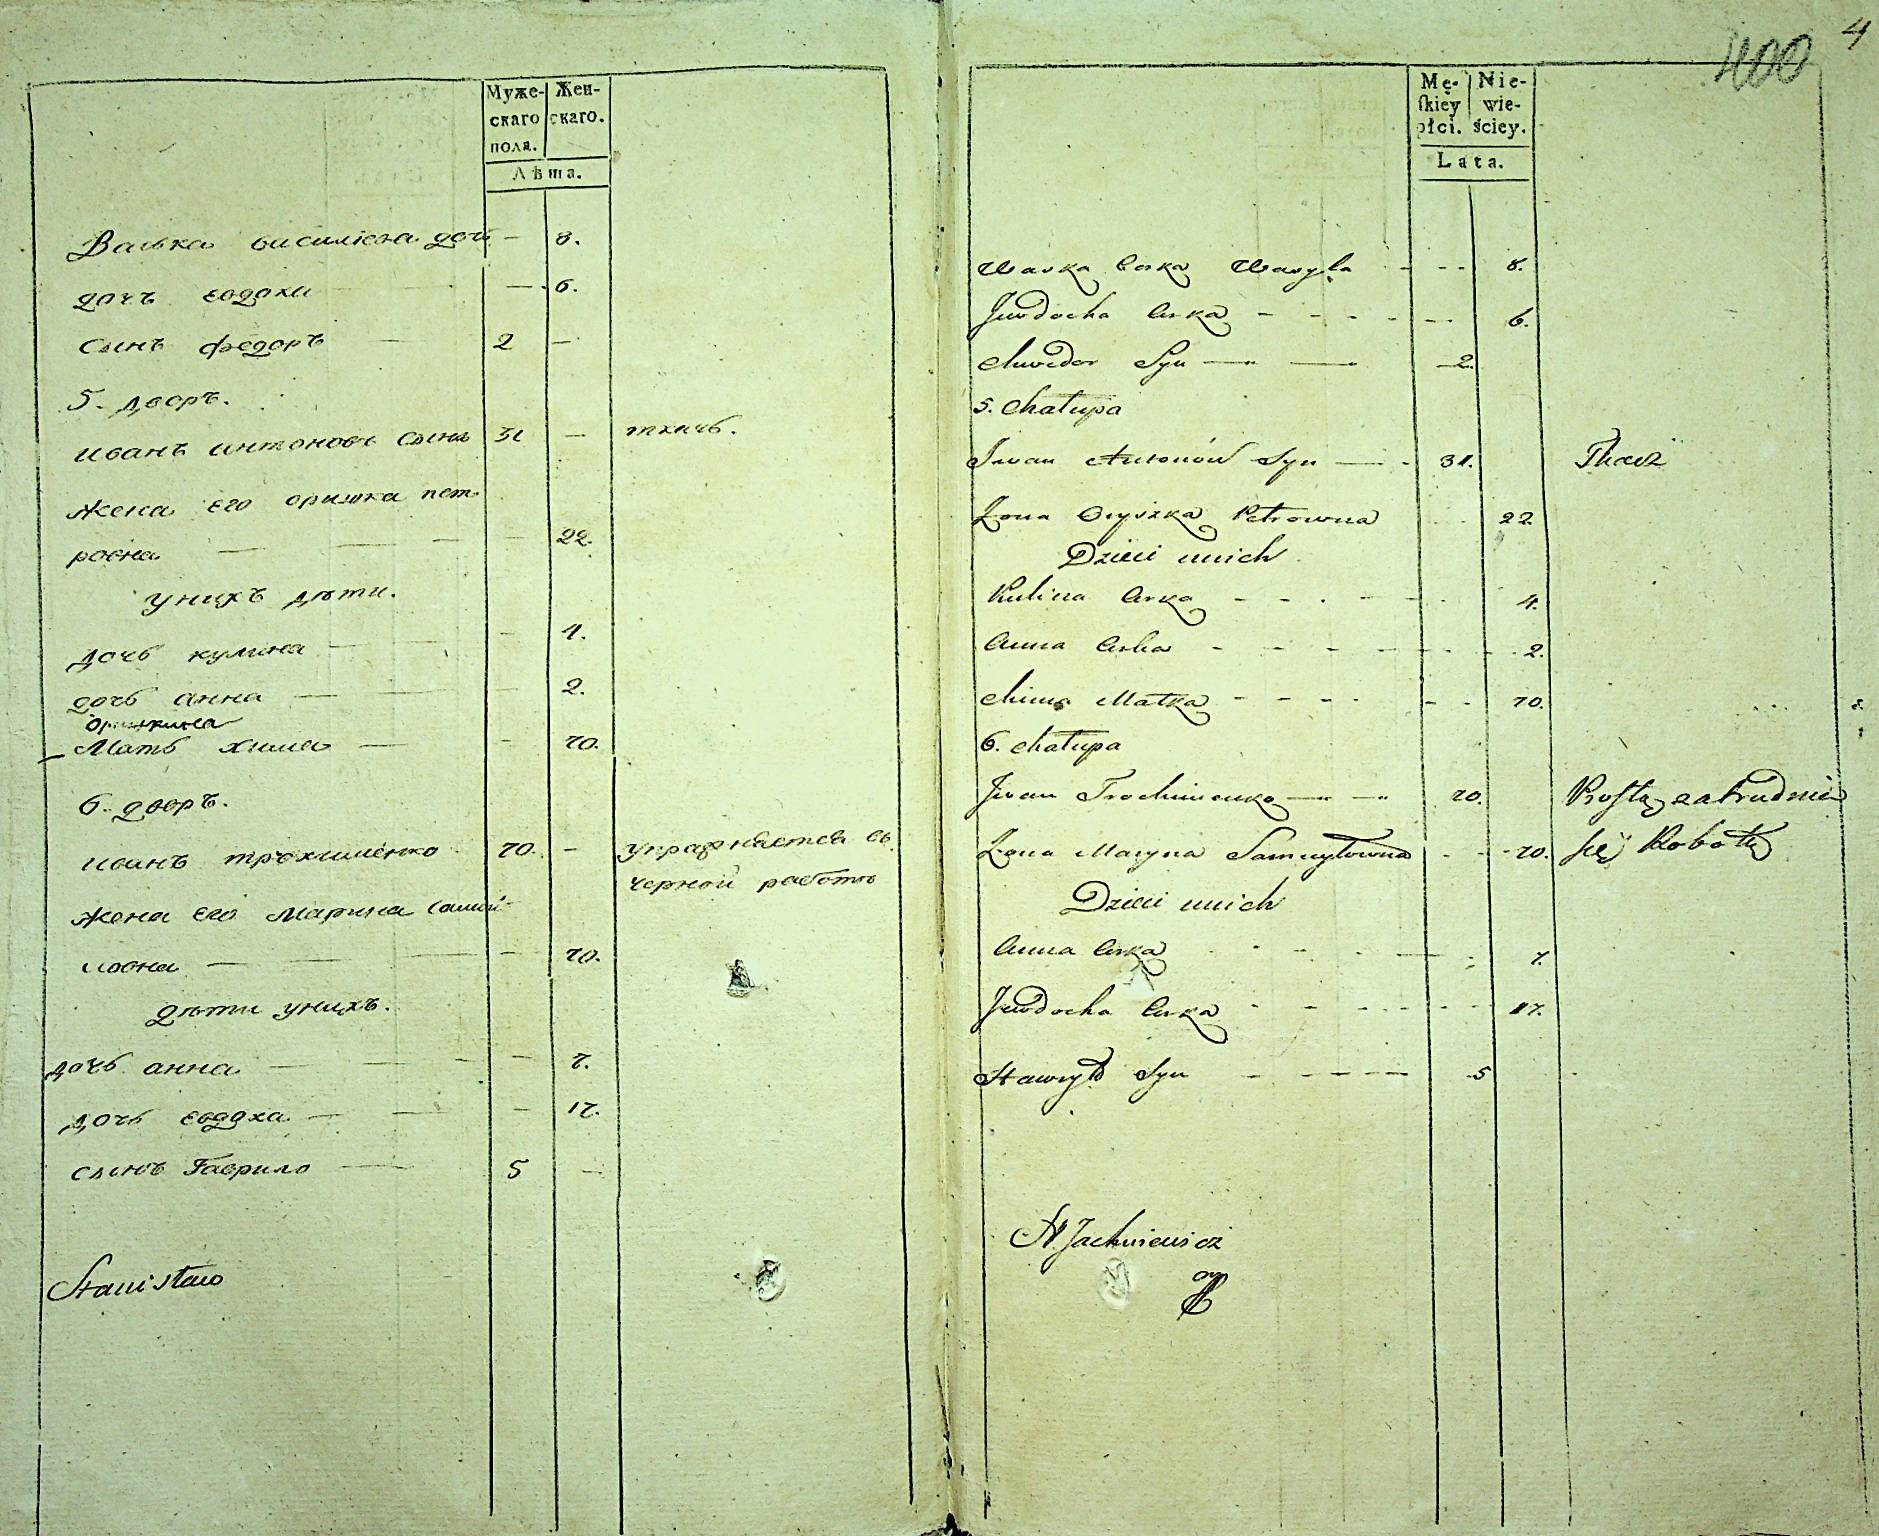 Муже-
скаго
пола.
Жен-
скаго.
Лѣта.
Васька василіева доч — 8.
дочъ евдохи — 6.
сынъ федоръ — 2 —
5. дворъ.
иванъ антоновъ сынъ 31 — ткачь.
жена его оришка пет
ровна — — — — 22.
унихъ дѣти.
дочь кулина — — 4.
дочь анна — — — 2.
оришкина
Мать хима — — 70.
6. дворъ.
иванъ трохименко 70. — упражняется въ
черной работѣ
жена его марина самуй
ловна — — — — 70.
дѣти унихъ.
дочь анна — — — — 7.
дочь евдоха — — — 17.
сынъ Гаврило — 5 —
Stanisław
4
400
Mę-
ſkiey
płci.
Nie-
wie-
ściey.
Lata.
Waska Corka Wasyla - - - 8.
Jewdocha Corka - - - - - - 6.
Chwedor Syn — — 2.
5. Chałupa
Iwan Antonów Syn — - 31. Tkacz
Żona Oryszka Petrowna - - 22
Dzieci unich
Kulina Corka - - - - - - 4.
Anna Corka - - - - - - - 2.
Chima Matka - - - - - - 70.
6. Chałupa
Jwan Trochimenko — — 70. Prostą zatrudnia
Żona Maryna Samuyłowna - - 70. się Robotą
Dzieci unich
Anna Corka - - - — - 7.
Jewdocha Corka - - - - - - 17.
Hawryło Syn - - - - - 5
Jachniewicz